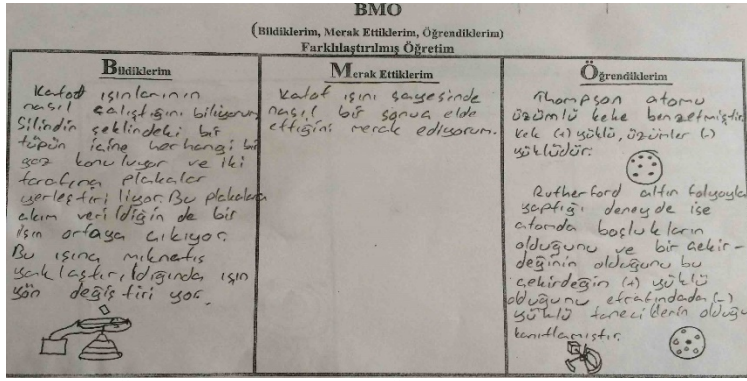 BMO
(Bildiklerim, Merak Ettiklerim, Öğrendiklerim)
Farklılaştırılmış Öğretim
Bildiklerim
Katot ışınlarının
nasıl çalıştığını biliyorum
Silindir şeklindeki bir
tüpün içine herhangi bi
gaz konuluyor ve iki
tarafına plakalar
yerleştiriliyor. Bu plakalara
akım verildiğin de bir
ışın ortaya çıkıyor.
Bu ışına mıknatıs
yaklaştırıldığında ışın
yön değiştiriyor.
Merak Ettiklerim
Katot ışını sayesinde
nasıl bir sonuca elde
ettiğini merak ediyorum.
Öğrendiklerim
Thompson atomu
üzümlü keke benzetmiştir
Kek (+) yüklü, üzümler (-)
yüklüdür.
Rutherford altın folyoyla
yaptığı deneyde ise
atomda boşlukların
olduğunu ve bir çekir-
değinin olduğunu bu
çekirdeğin (+) yüklü
olduğunu etrafındada (-)
yüklü taneciklerin olduğu
kanıtlamıştır.